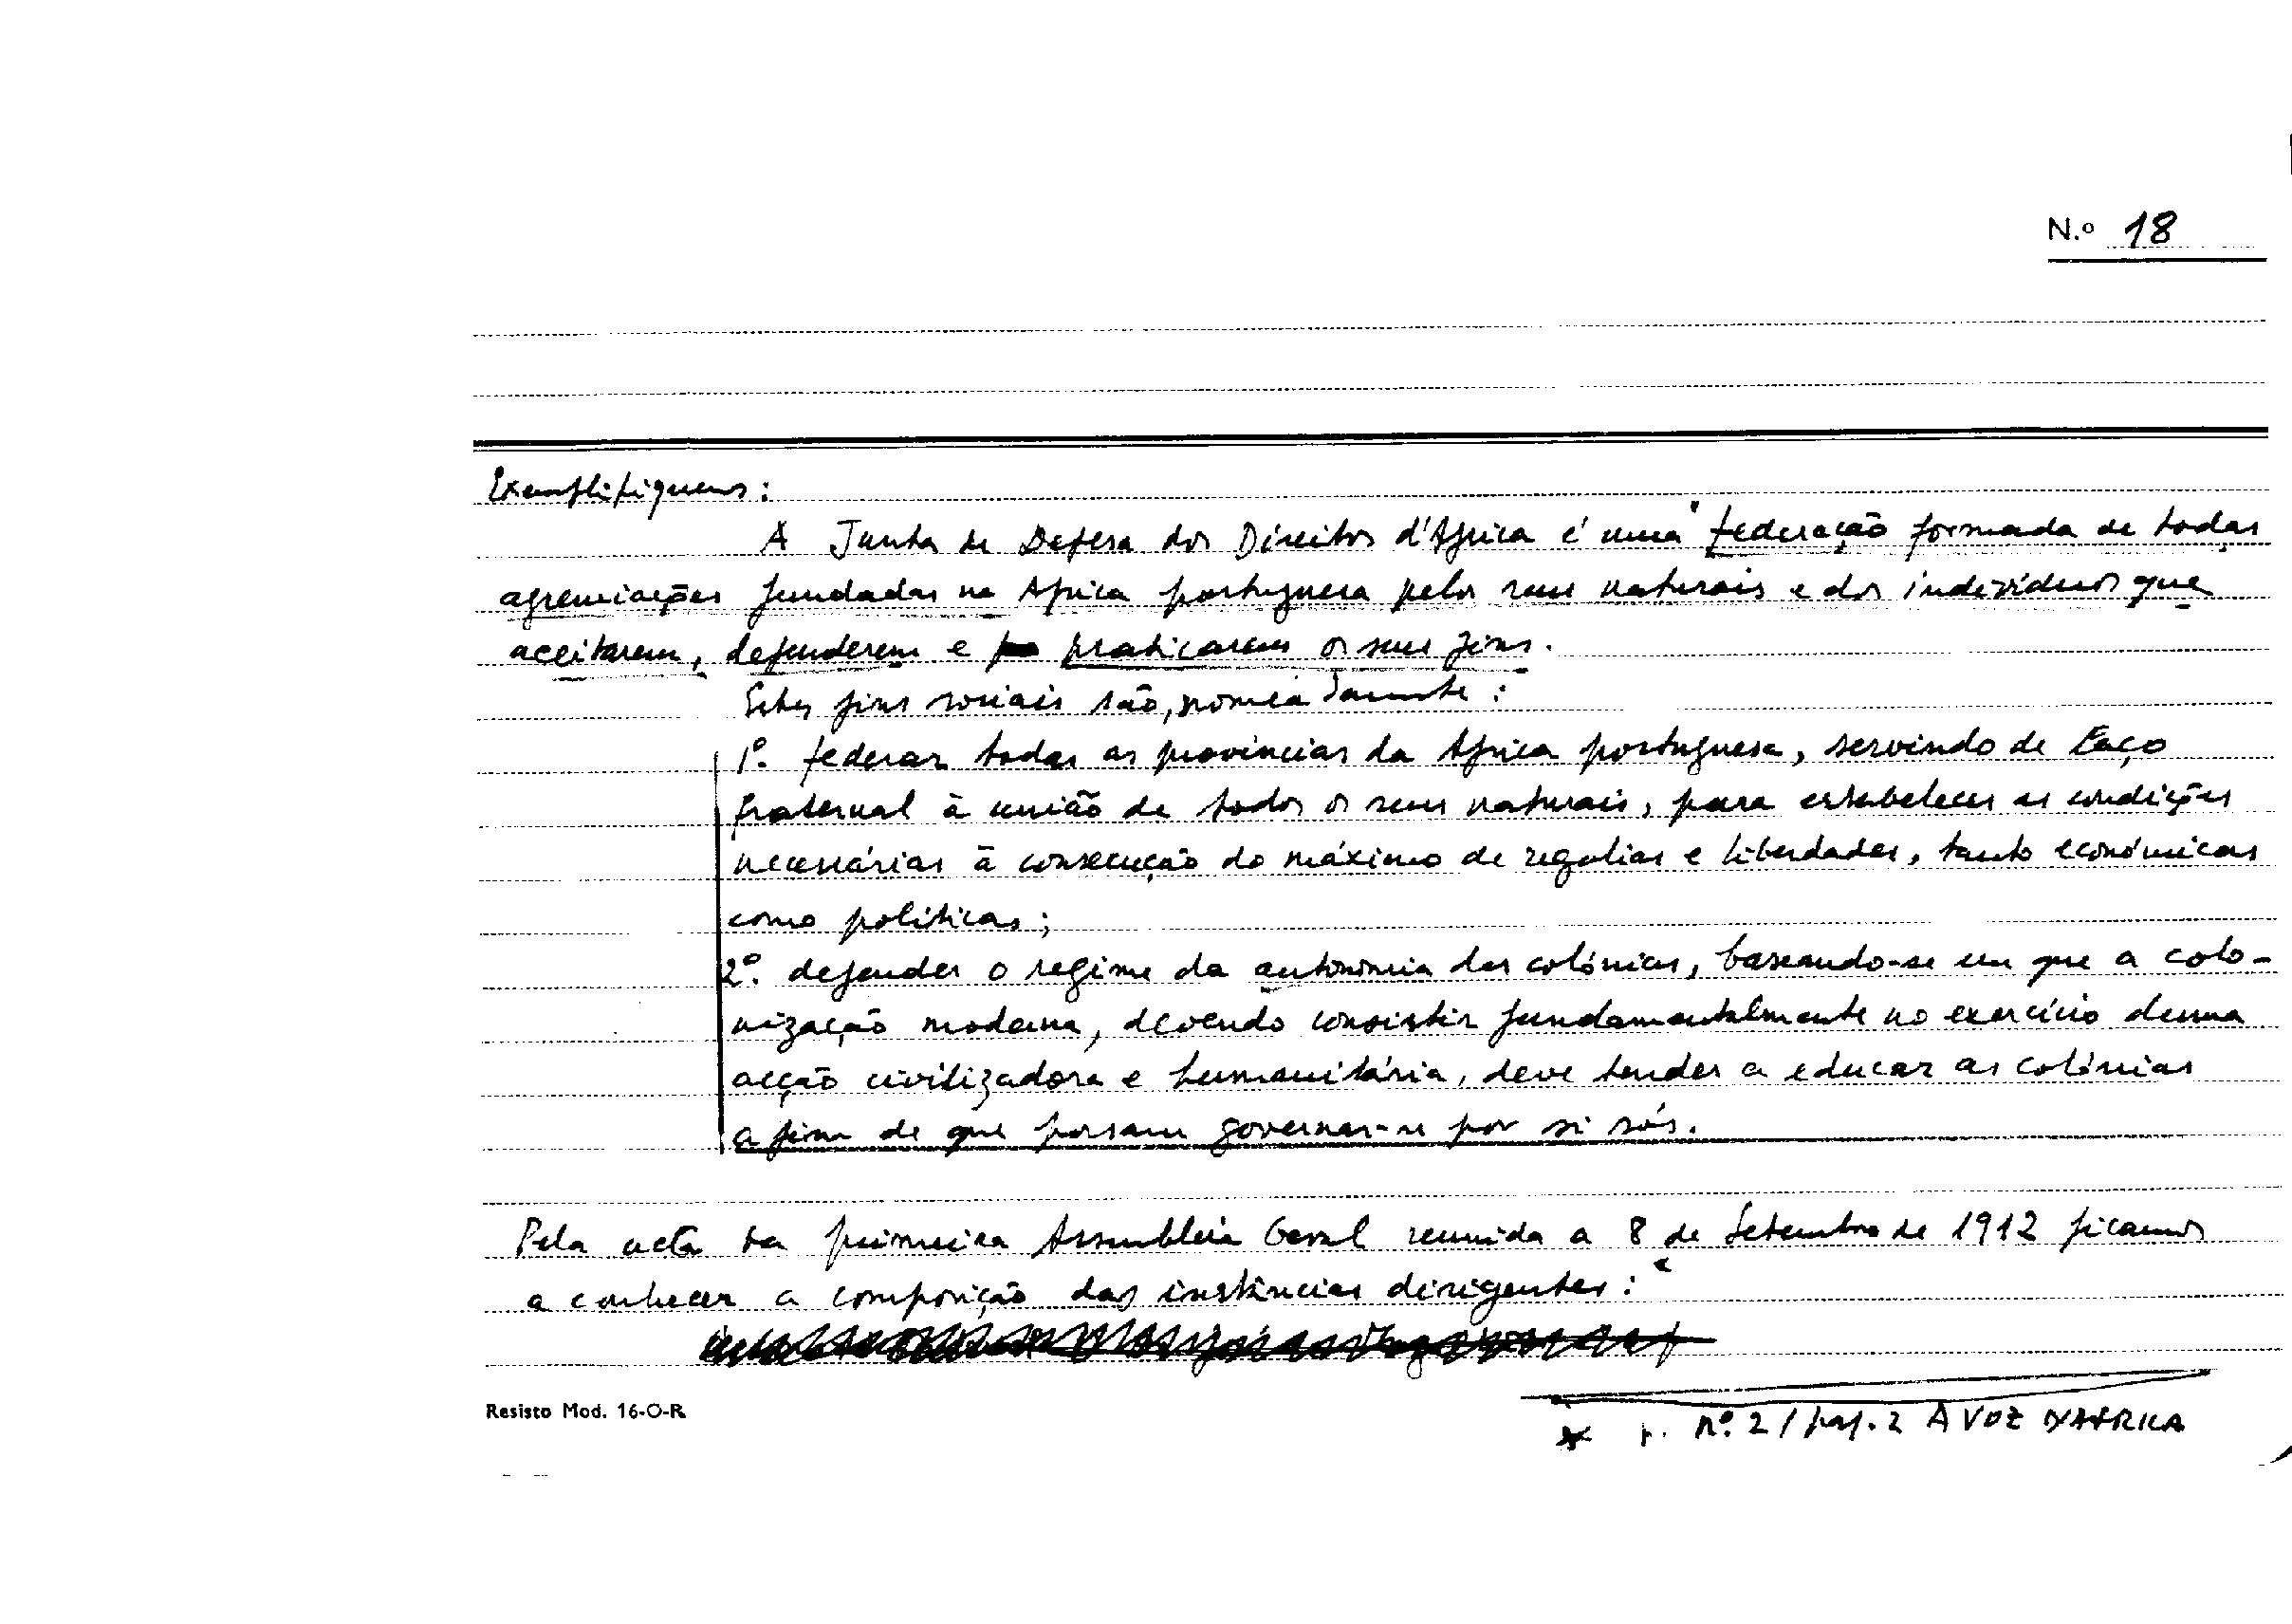 N.º 18
Exemplifiquemos:
A Junta de Defesa dos Direitos d'Africa é uma "federação formada de todas
agremiações fundadas na Africa portuguesa pelos seus naturais e dos indivíduos que
aceitarem, defenderem e praticarem os seus fins.
Estes fins sociais são, nomeadamente:
1º. federar todas as províncias da Africa portuguesa, servindo de laço
fraternal à união de todos os seus naturais, para estabelecer as condições
necessárias à consecução do máximo de regalias e liberdades, tanto económicas
como políticas;
2º. defender o regime da autonomia das colónias, baseando-se em que a colo-
nização moderna, devendo consistir fundamentalmente no exercício duma
acção civilizadora e humanitária, deve tender a educar as colónias
a fim de que possam governar-se por si sós.
Pela acta da primeira Assembleia Geral reunida a 8 de Setembro de 1912 ficamos
a conhecer a composição das instâncias dirigentes: "
Resisto Mod. 16-O-R
* nº. 2 / pag. 2 A VOZ D'AFRICA